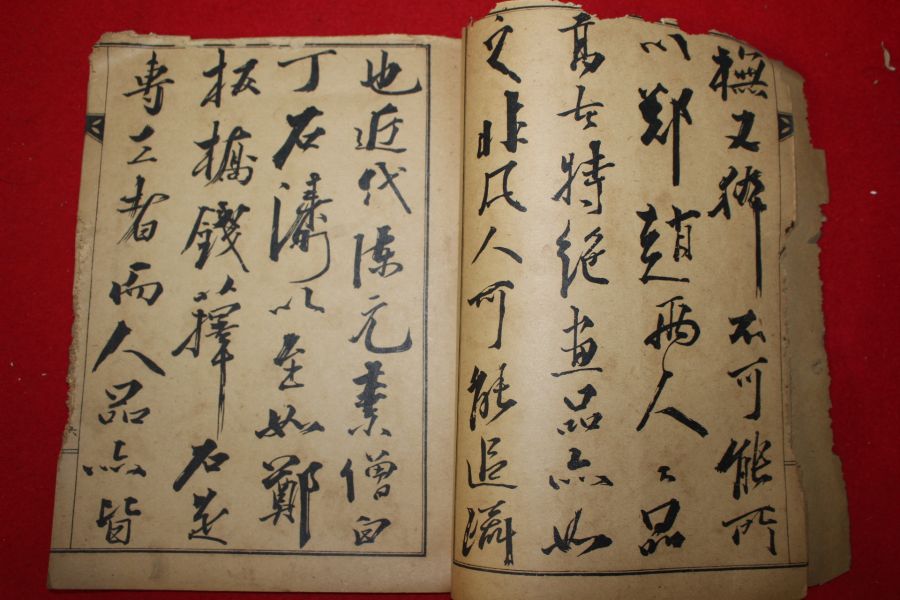 橅又不可能所
以鄭趙兩人〻品
高古特絕畫品亦如
之非凡人可能追躡
也近代陳元素僧白
丁石濤以至如鄭
板橋錢籜石是
專工者而人品亦皆